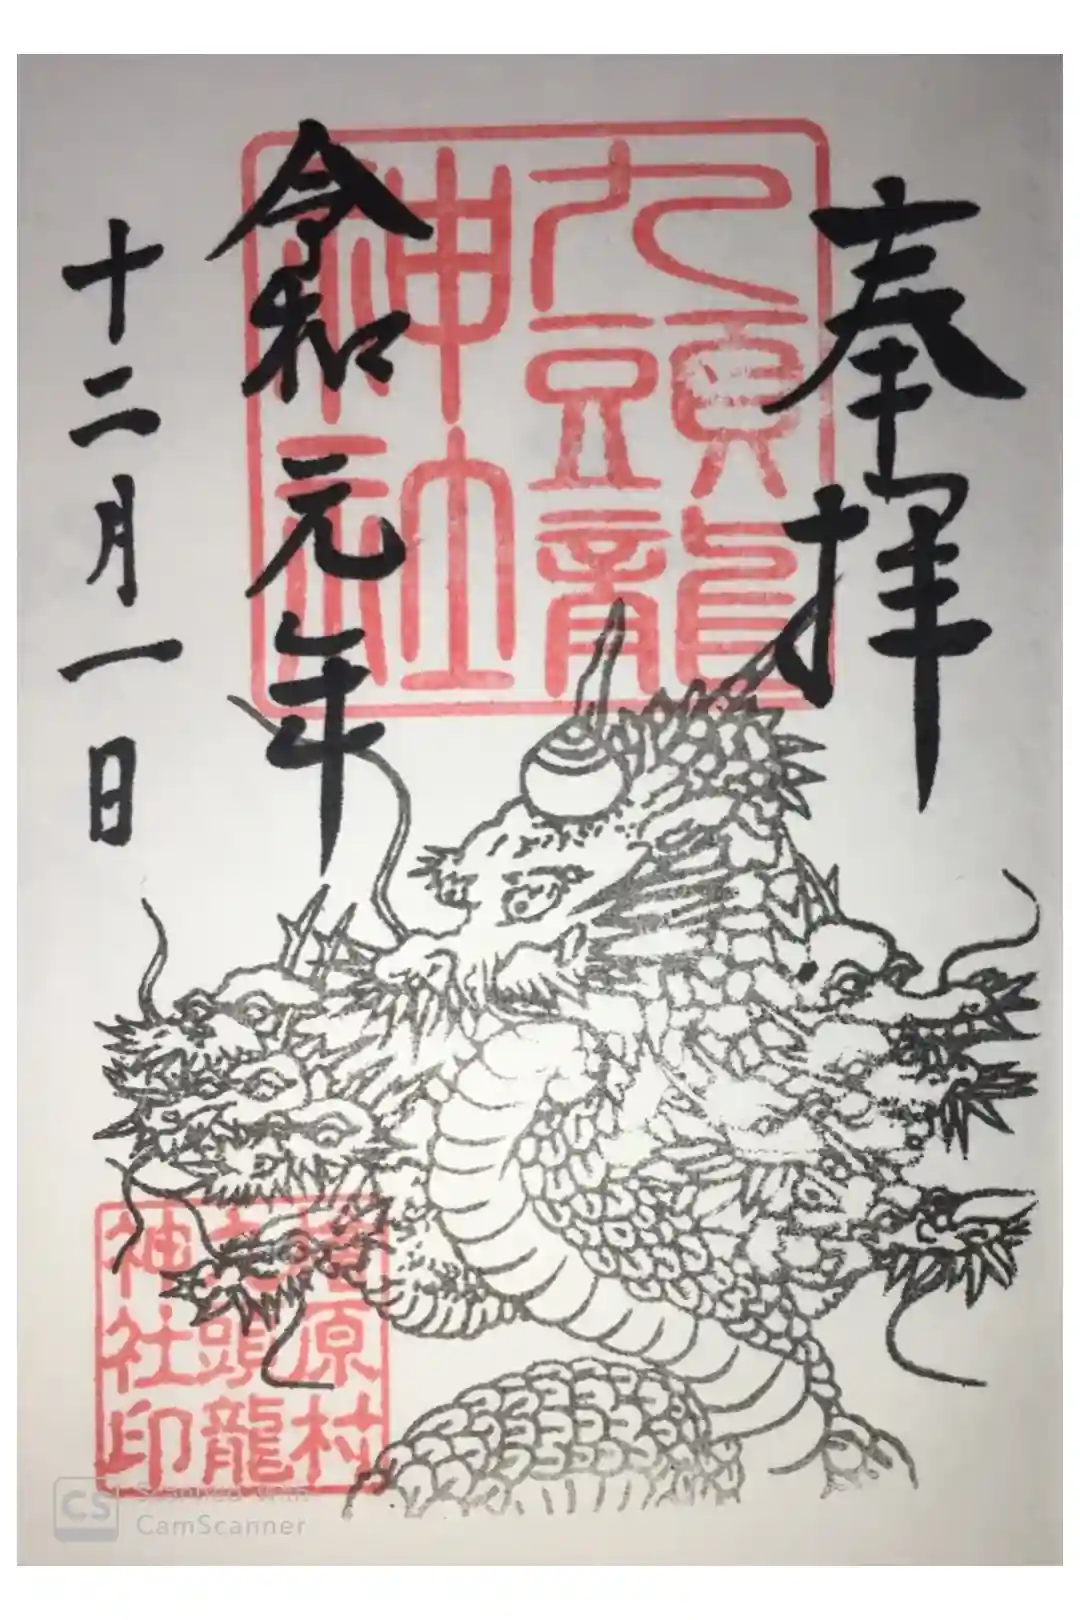 奉拝
九頭龍
神社
令和元年
十二月一日
檜原村
九頭龍
神社印
CS
Scanned with
CamScanner